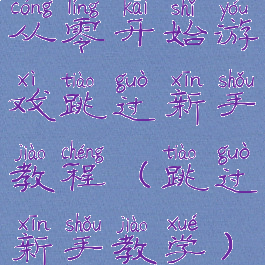 cóng líng kāi shǐ yóu
从零开始游
xì tiào guò xīn shǒu
戏跳过新手
jiào chéng tiào guò
教程（跳过
xīn shǒu jiào xué
新手教学）